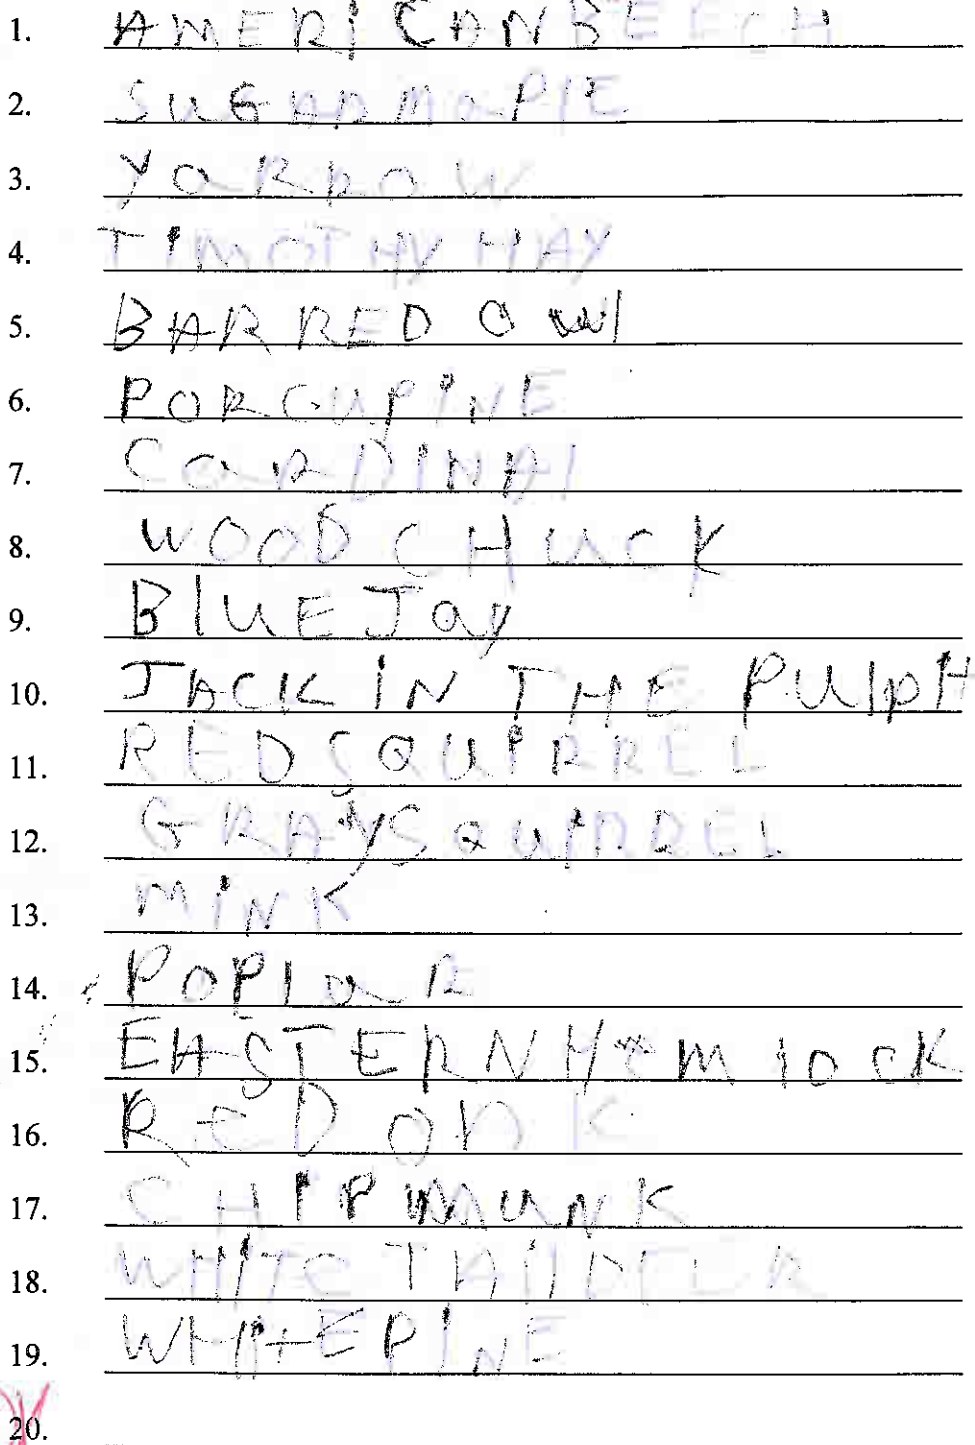 1. AMERiCAN BEECH
2. SUGAR MaPlE
3. YaRROW
4. TIMOTHY HAY
5. BARRED Owl
6. PORCUPiNE
7. CaRDINAl
8. WOOD CHUCK
9. BlUE Jay
10. JACK iN THE PUlpH
11. RED SQUIRREL
12. GRAY SQUIRREL
13. MiNK
14. POPlaR
15. EASTERN HEMlOCK
16. RED OAK
17. CHIPMUNK
18. WHITE TAIlDEER
19. WHitE PINE
20.